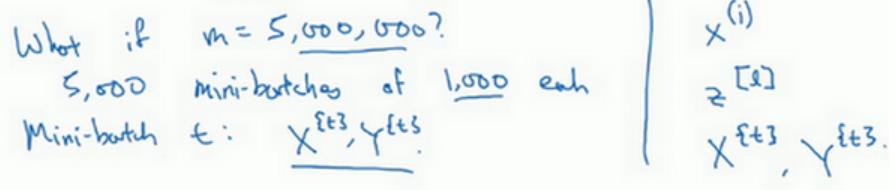 What if m = 5,000,000?
5,000 mini-batches of 1,000 each
Mini-batch t: X^{t}, Y^{t}.
x^(i)
z^[l]
X^{t}, Y^{t}.